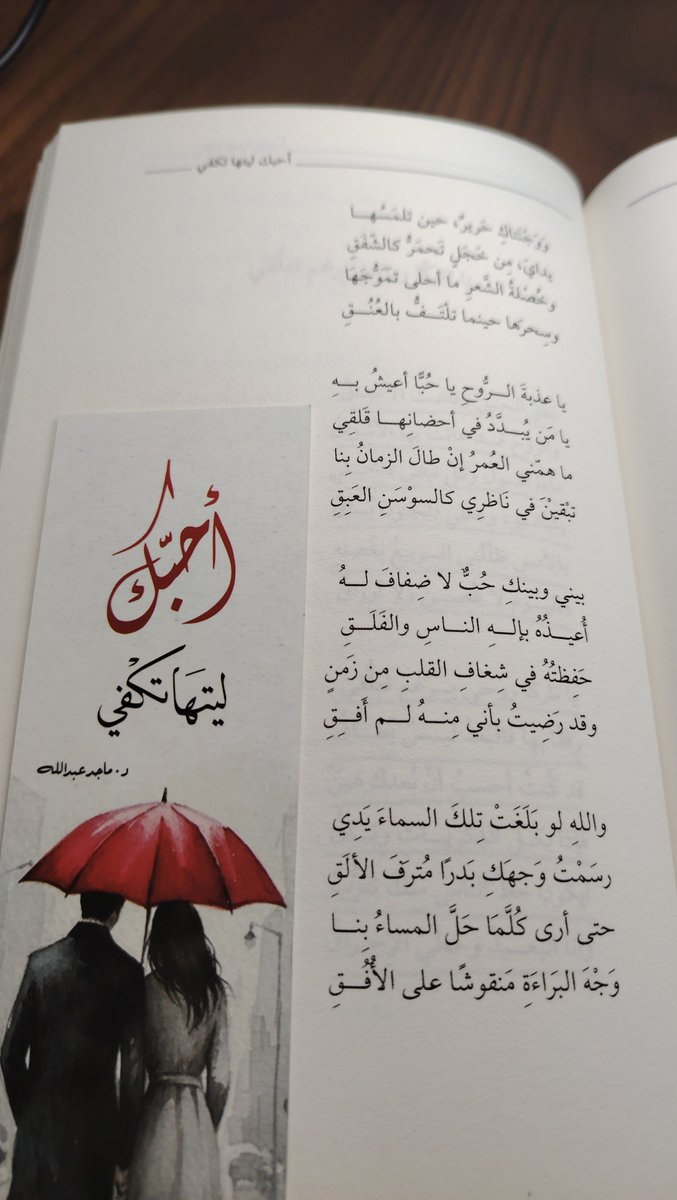 أحبك ليتها تكفي
وَوَجْنَتاكِ حَريرٌ، حين تلمَسُهـــا
يدايَ، مِن خَجَلٍ تَحمَرُّ كالشَّفَقِ
وخُصْلةُ الشَّعرِ ما أحلى تمَوُّجَهَا
وسِحرَها حينما تلْتَـــفُّ بالعُنُـــقِ
يا عذبةَ الـــرُّوحِ يا حُبًّا أعيشُ بـــهِ
يا مَن يُبـــدَّدُ في أحضانِهـــا قَلقِي
ما همّني العُمرُ إنْ طالَ الزمانُ بِنا
تبْقينَ في نَاظرِي كالسوْسَنِ العَبِقِ
بيني وبينكِ حُبٌّ لا ضِفافَ لـــهُ
أُعيـــذُهُ بإلـــهِ النـــاسِ والفَلَـــقِ
حَفِظتُهُ في شِغافِ القلبِ مِن زَمنٍ
وقد رَضِيتُ بأني مِنـــهُ لـــم أَفـــقِ
واللهِ لو بَلَغَتْ تِلكَ السماءَ يَدِي
رسَمْتُ وَجهَكِ بَدرًا مُترَفَ الألَقِ
حتى أرى كُلَّمَا حَلَّ المساءُ بِنـــا
وَجْهَ البَرَاءَةِ مَنقوشًا على الأُفُـــقِ
أحبّك
ليتهَا تكفْي
د. ماجد عبدالله